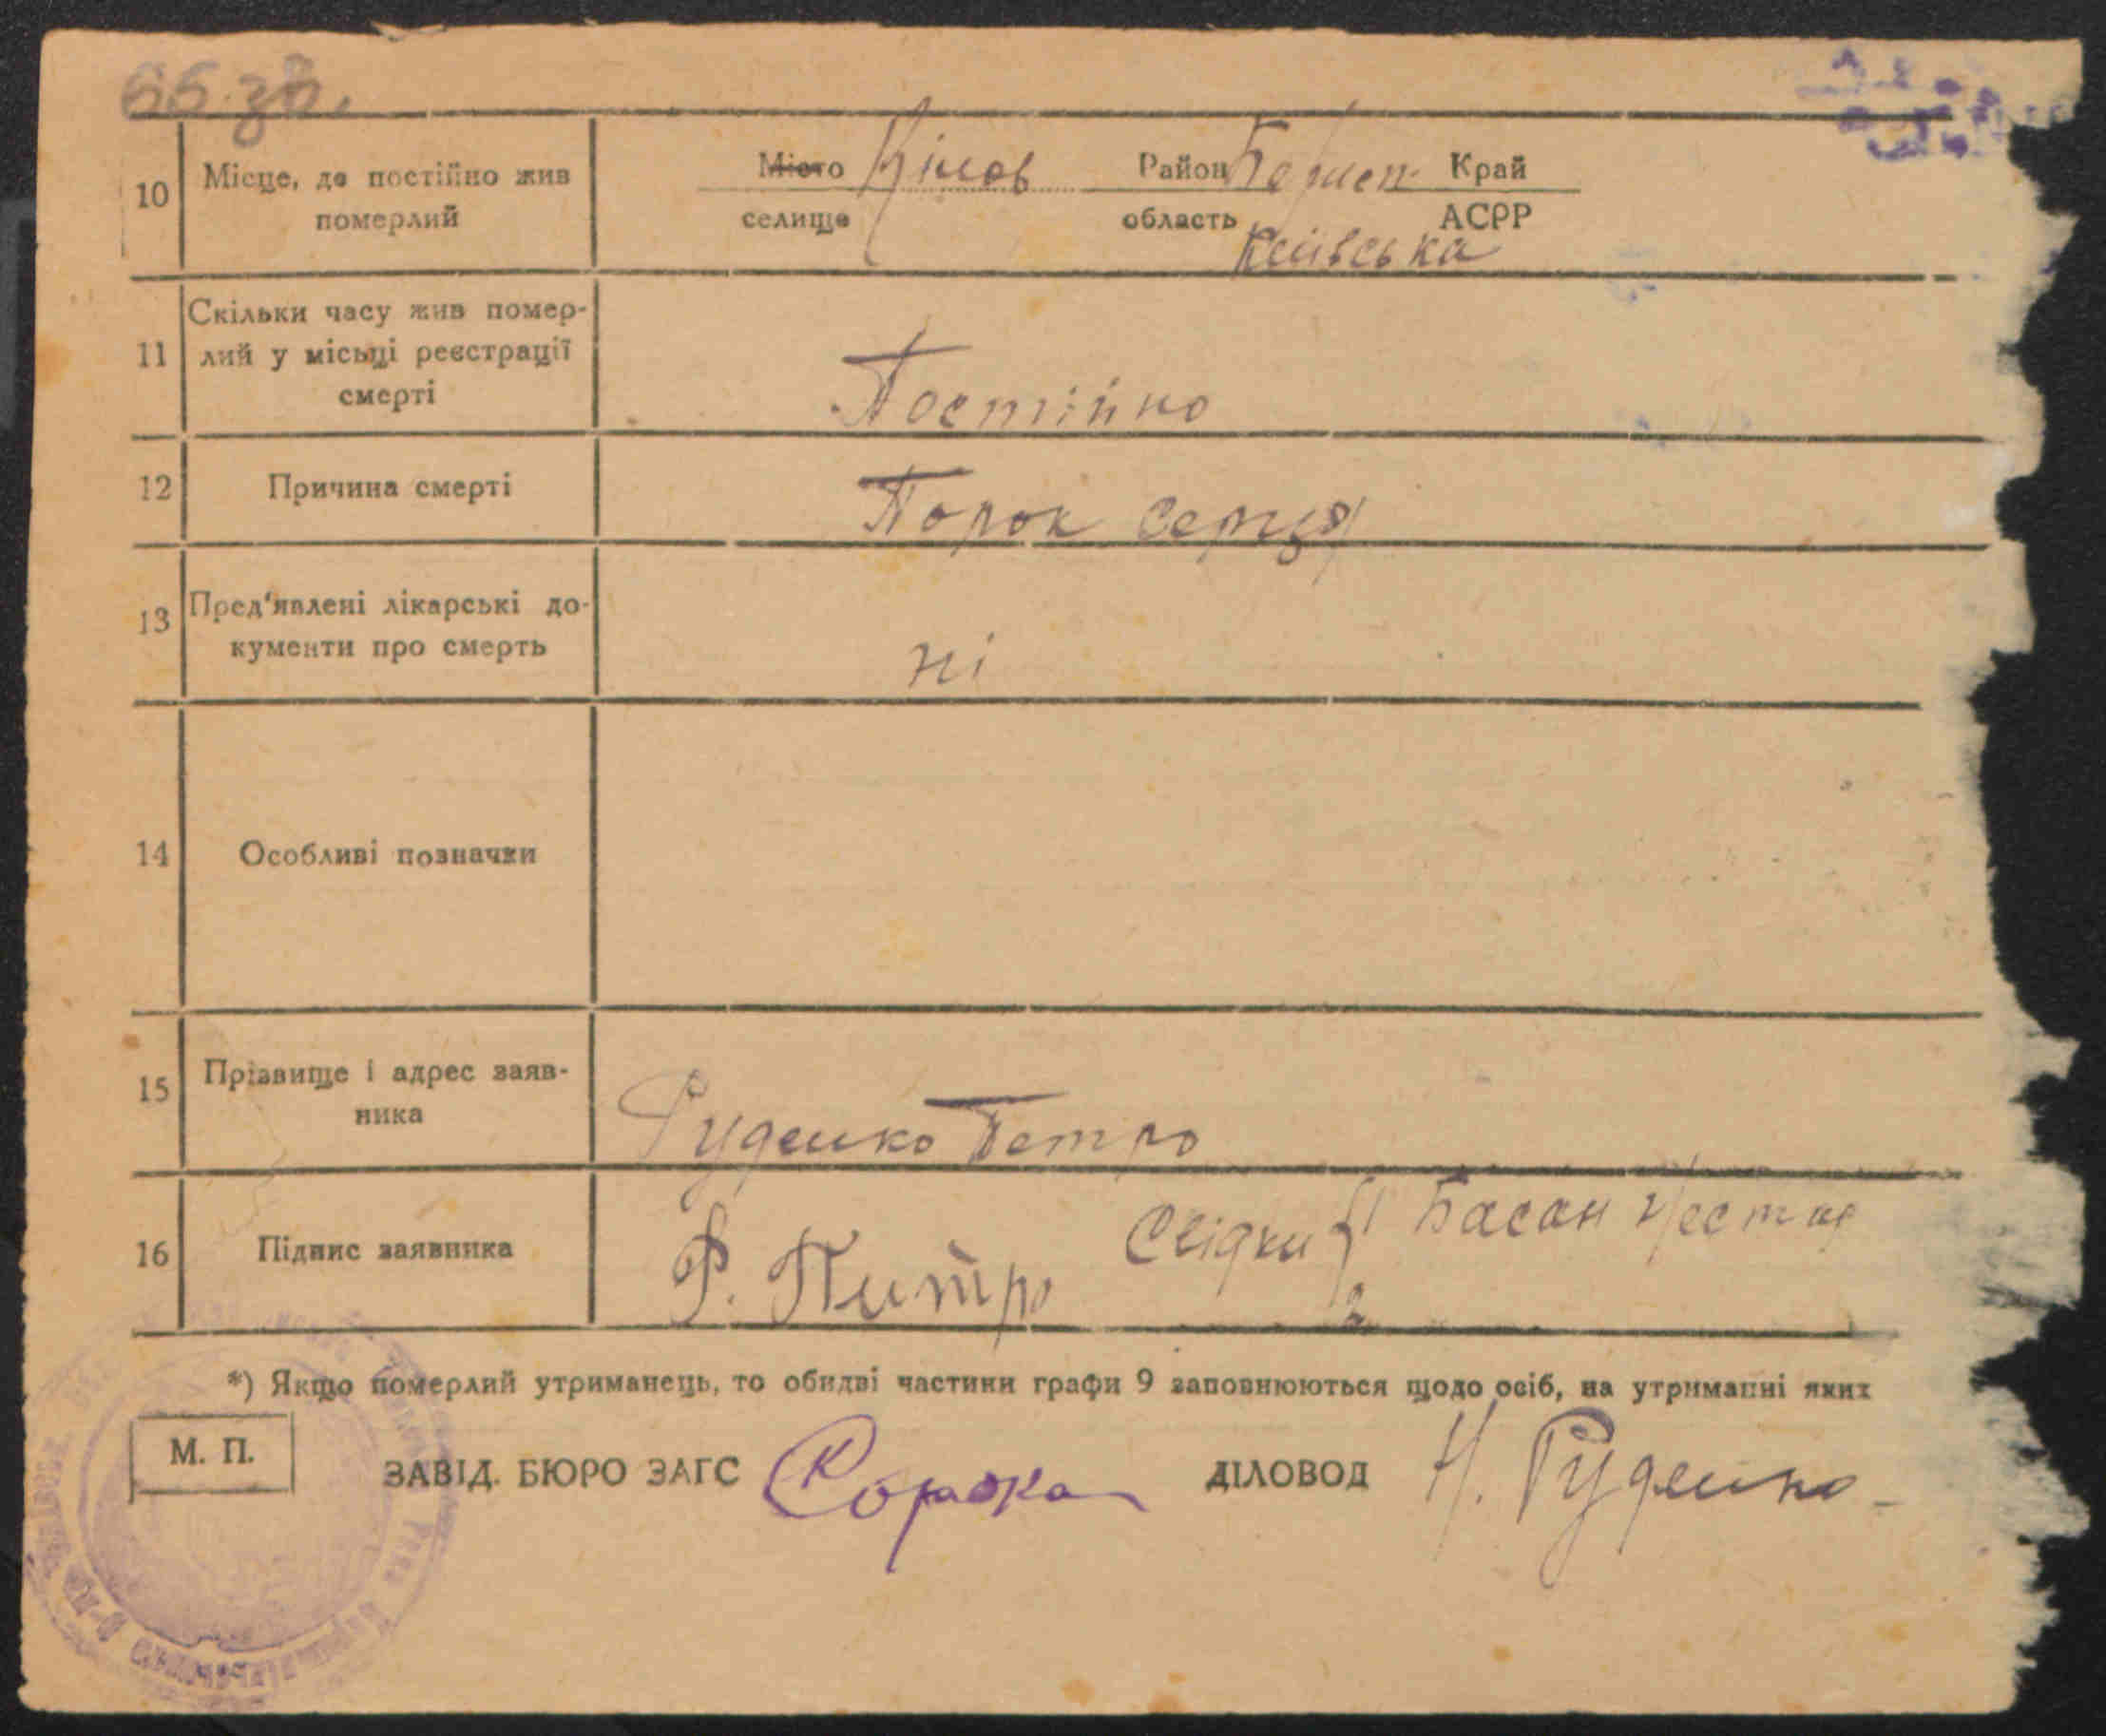 66 зв.
10 Місце, де постійно жив померлий
Місто Район Край
селище область АСРР
Київська
11 Скільки часу жив помер-
лий у місьці реєстрації
смерті
Постійно
12 Причина смерті Порок серця
13 Пред'явлені лікарські до-
кументи про смерть
ні
14 Особливі позначки
15 Прізвище і адрес заяв-
ника
Руденко Петро
16 Підпис заявника Р. Питро Свідки 1 Басан
2
*) Якщо померлий утриманець, то обидві частини графи 9 заповнюються щодо осіб, на утриманні яких
М. П.
ЗАВІД. БЮРО ЗАГС Сорока ДІЛОВОД Н. Руденко